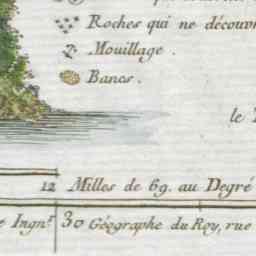 Roches qui ne découvr
Mouillage.
Bancs.
le
12 Milles de 69. au Degré
e Ingnr. 30 Géographe du Roy, rue